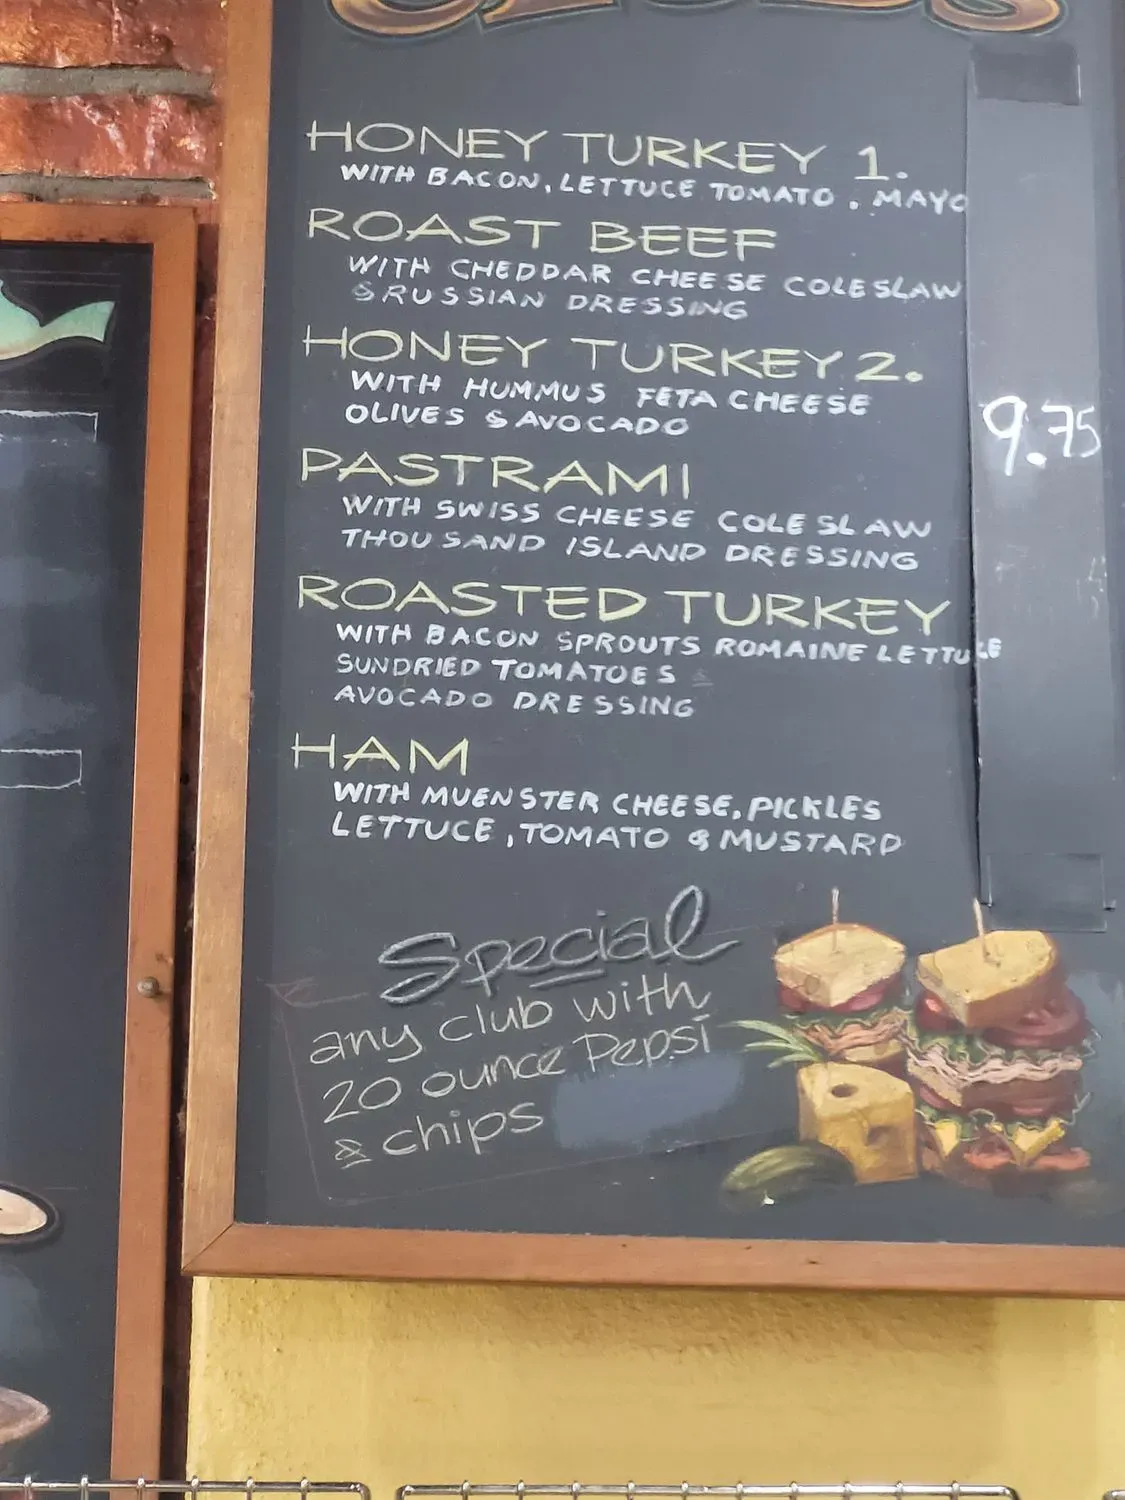 CLUBS
HONEY TURKEY 1.
WITH BACON, LETTUCE TOMATO, MAYO
ROAST BEEF
WITH CHEDDAR CHEESE COLESLAW
& RUSSIAN DRESSING
HONEY TURKEY 2.
WITH HUMMUS FETA CHEESE
OLIVES & AVOCADO
9.75
PASTRAMI
WITH SWISS CHEESE COLESLAW
THOUSAND ISLAND DRESSING
ROASTED TURKEY
WITH BACON SPROUTS ROMAINE LETTUCE
SUNDRIED TOMATOES
AVOCADO DRESSING
HAM
WITH MUENSTER CHEESE, PICKLES
LETTUCE, TOMATO & MUSTARD
Special
any club with
20 ounce Pepsi
& chips